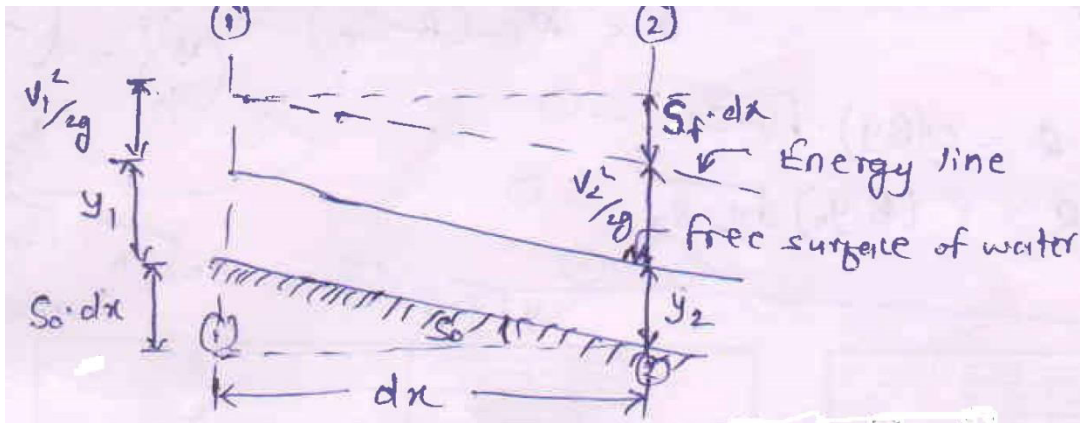 ① ②
V₁²/2g
S_f·dx
Energy line
y₁
V₂²/2g
free surface of water
S₀·dx
S₀
y₂
① ②
dx